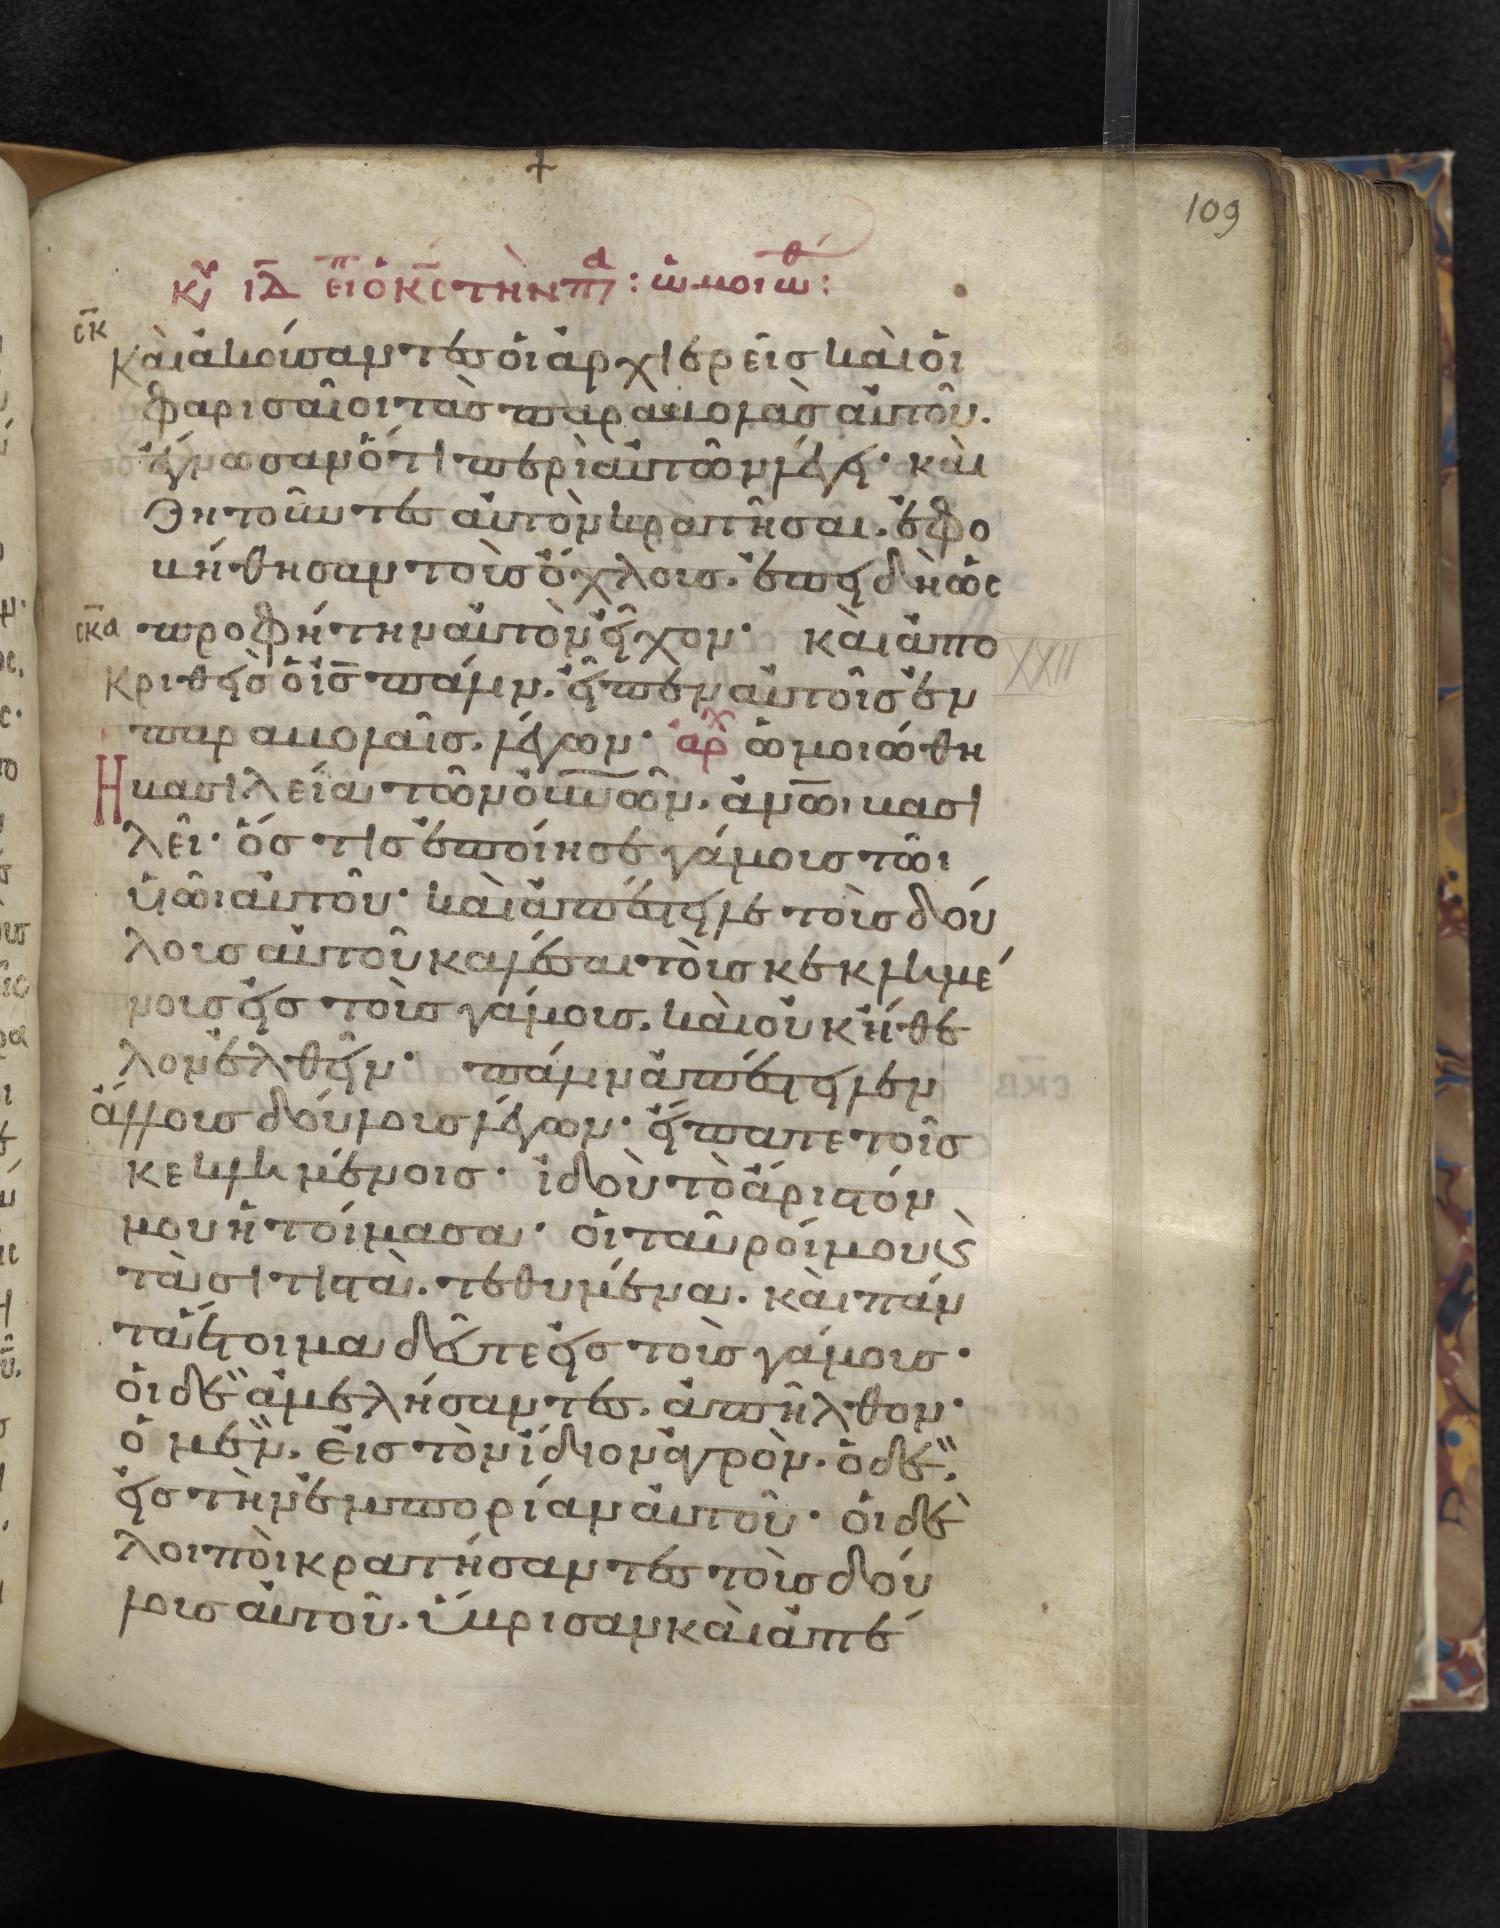 109
κυ ιδ ειπ ο κς την πα : ὡμοιωθ :
σκ
Καὶ ἀκούσαντες οἱ ἀρχιερεῖς καὶ οἱ
φαρισαῖοι τὰς παραβολὰς αὐτοῦ.
ἔγνωσαν ὅτι περὶ αὐτῶν λέγει· καὶ
ζητοῦντες αὐτὸν κρατῆσαι. ἐφο
βήθησαν τοὺς ὄχλους. ἐπειδὴ ὡς
σκα προφήτην αὐτὸν εἶχον· καὶ ἀπο
κριθεὶς ὁ ις πάλιν. εἶπεν αὐτοῖς ἐν
παραβολαῖς. λέγων· αρχ ὡμοιώθη
Η βασιλεία τῶν οὐνῶν. ἀνω βασι
λεῖ· ὅς τις ἐποίησε γάμους τῶι
υἱῶι αὐτοῦ· καὶ ἀπέστειλε τοὺς δού
λους αὐτοῦ καλέσαι τοὺς κεκλημέ
νους εἰς τοὺς γάμους. καὶ οὐκ ἤθε
λον ἐλθεῖν· πάλιν ἀπέστειλεν
ἄλλους δούλους λέγων· εἴπατε τοῖς
κεκλημένοις· ἰδοὺ τὸ ἄριστόν
μου ἡτοίμασα· οἱ ταῦροί μου ϛ
τὰ σιτιστὰ. τεθυμένα. καὶ πάν
τα ἕτοιμα δεῦτε εἰς τοὺς γάμους·
οἱ δὲ ἀμελήσαντες. ἀπῆλθον·
ὁ μὲν. εἰς τὸν ἴδιον ἀγρὸν. ὁ δὲ.
εἰς τὴν ἐμπορίαν αὐτοῦ· οἱ δὲ
λοιποὶ κρατήσαντες τοὺς δού
λους αὐτοῦ. ὕβρισαν καὶ ἀπέ
XXII